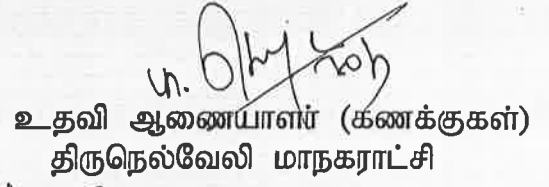 உதவி ஆணையாளர் (கணக்குகள்)
திருநெல்வேலி மாநகராட்சி